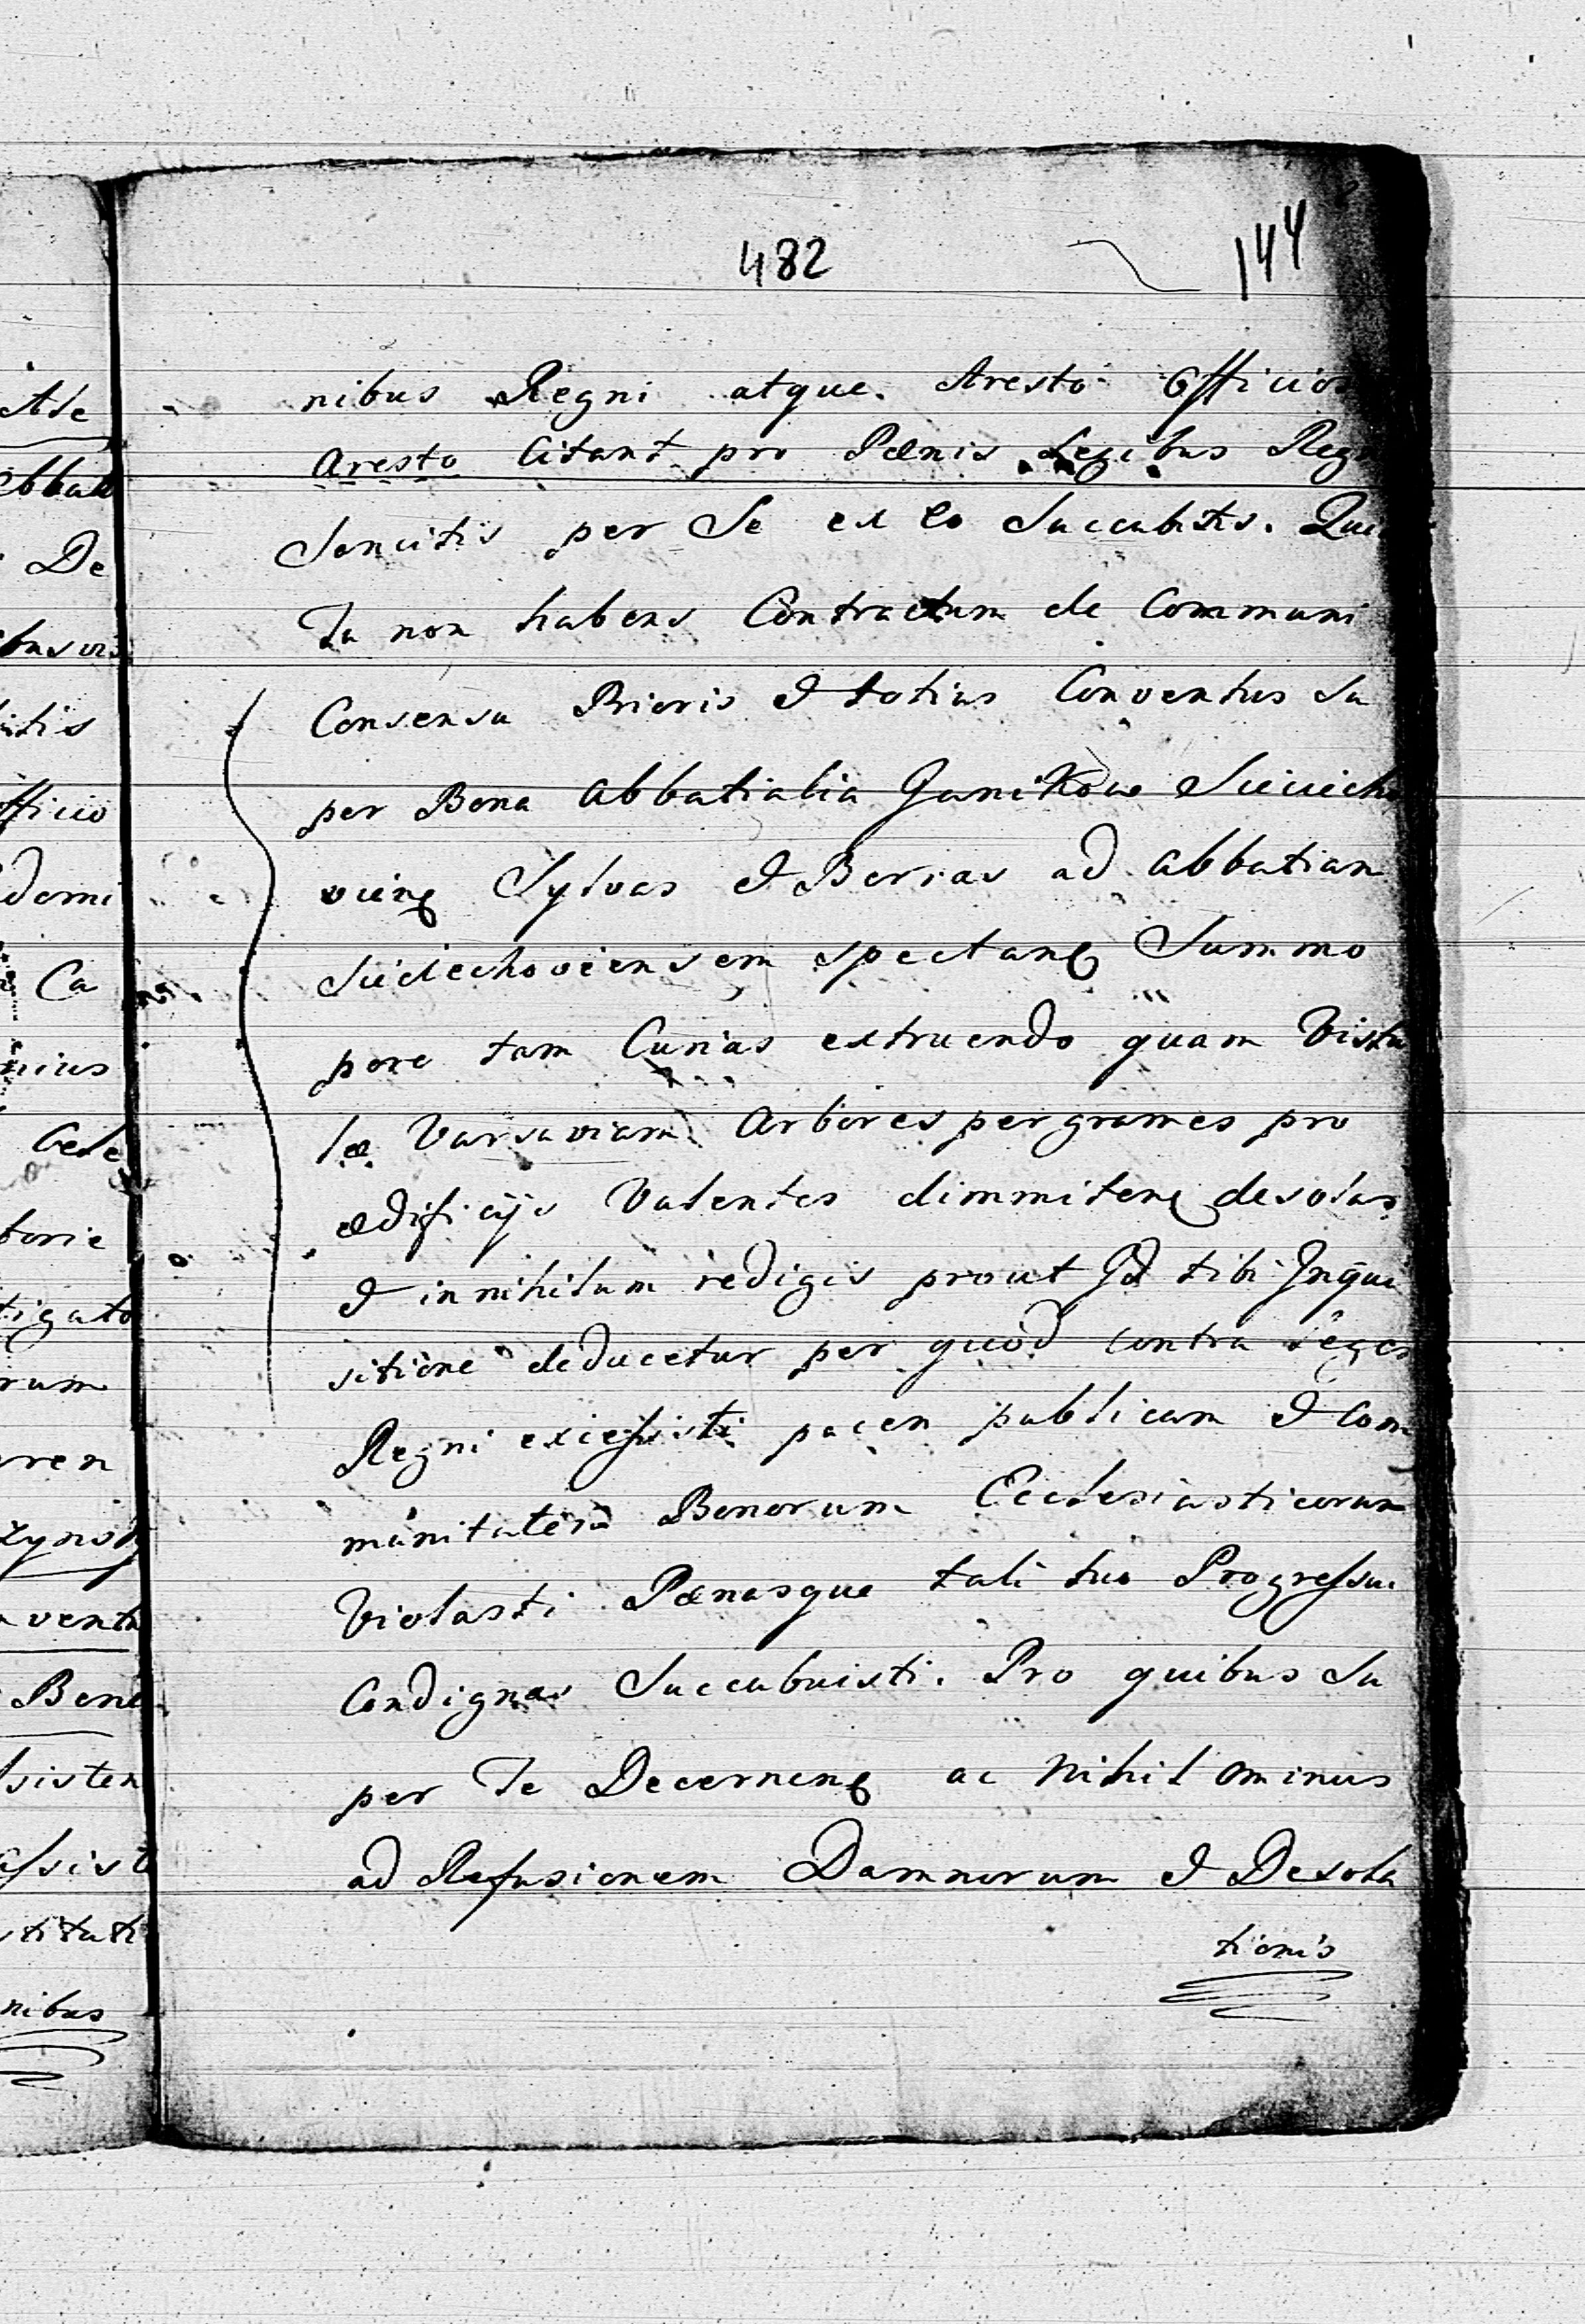 482 144
nibus Regni atque. Aresto Officios
Aresto Citant pro Pœnis Legibus Regn
Sancitis per Se ex eo Succubitis. Qui
Tu non habens Contractum de Communi
Consensu Prioris et totius Conventus Su
per Bona Abbatialia Janikow Sieciech
vien Sylvas et Borras ad Abbatiam
Sieciechoviensem spectan Summo
pere tam Curias extruendo quam Vistu
læ Varsaviam Arbores pergrames pro
ædificijs Valentes dimmiten desolas
et in nihilum redigis prout Id tibi Inqui
sitione deducetur per quod contra leges
Regni excessisti pacem publicam et Com
munitatem Bonorum Ecclesiasticorum
Violasti Pœnasque tali tuo Progressu
Condignas Succubuisti. Pro quibus Su
per Te Decernen ac Nihil ominus
ad Refusionem Damnorum et Desola
tionis
Ca
De
domi
nibus